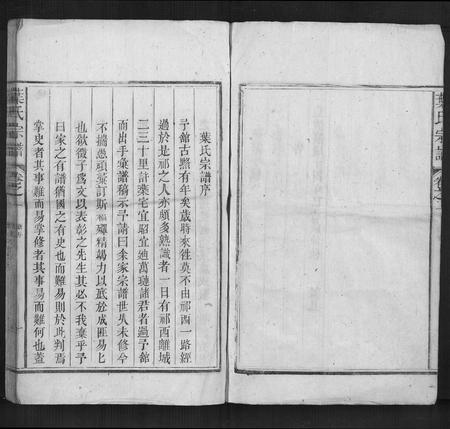 葉氏宗譜序
予館古黟有年矣歲時來往莫不由祁西一路經
過於是祁之人亦頗多熟識者一日有祁西離城
二三十里許葉宅宜昭宜廸萬璉諸君者過予館
而出手彙譜稿示予請曰余家宗譜世久未修今
不揣愚頑彙訂斯編殫精竭力以底於成匪易也
也欲徵子爲文以表彰之先生其必不我棄乎予
曰家之有譜猶國之有史也而難易則於此判焉
掌史者其事難而易掌修者其事易而難何也蓋
葉氏宗譜
卷之一
葉氏宗譜
卷之